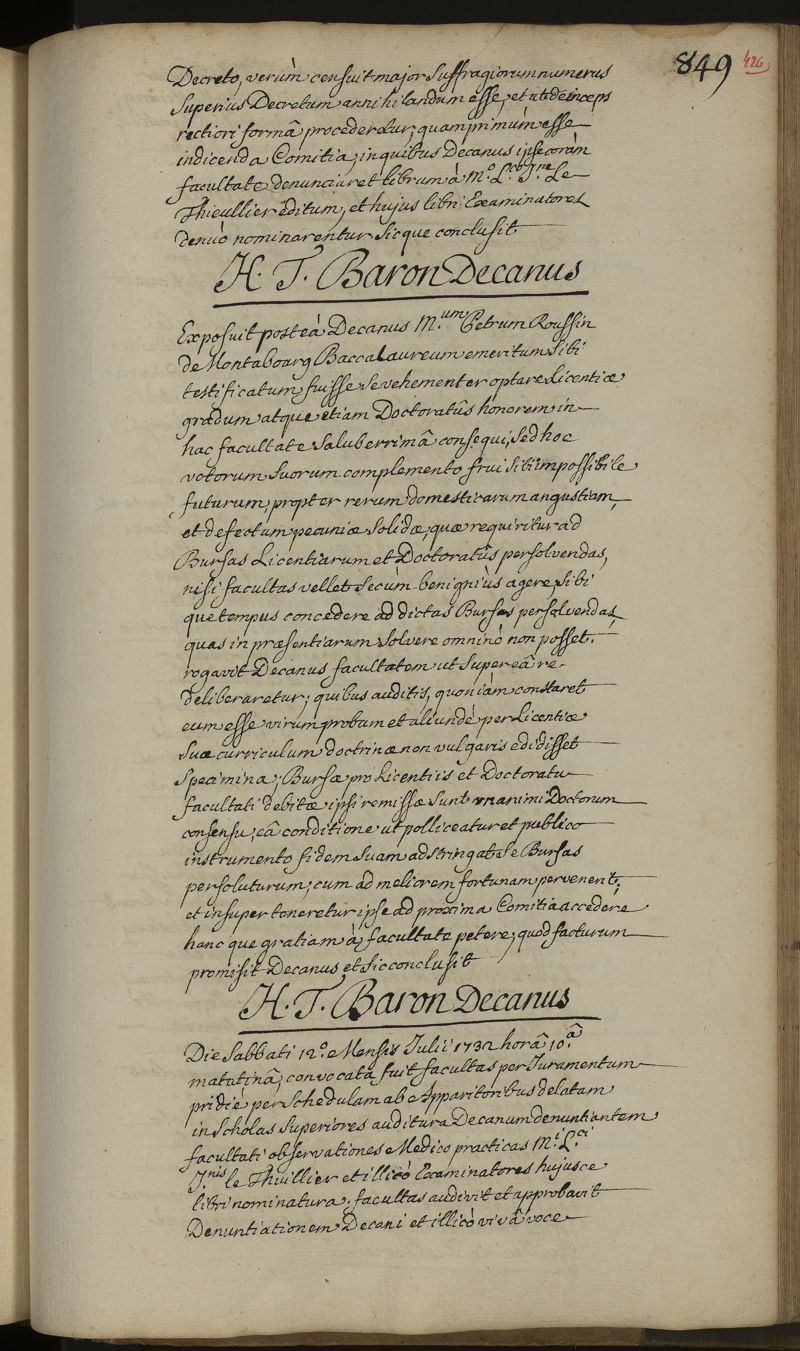 849 426
Decreto, verùm censuit major Suffragiorum numerus
Superius Decretum annihilandum esse, et ut deinceps
rectiori formâ procederetur, quamprimùm esse
indicenda Comitia, in quibus Decanus ipse coràm
facultate denunciaret librum à M.º L.co J.ne Le
Thieullier editum, et hujus libri Examinatores
denuò nominarentur sicque conclusit
H. T. Baron Decanus
Exposuit posteà Decanus M.um Petrum Roussin
de Montabourg Baccalaureum emeritum sibi
testificatum fuisse se vehementer optare Licentiæ
gradum atque etiam Doctoratûs honorem in
hac facultate saluberrimâ consequi, sed hoc
votorum suorum complemento frui sibi impossibile
futurum, propter rerum domesticarum angustiam,
et defectum pecuniæ solidæ, quæ requiritur ad
Bursas Licentiarum et Doctoratûs persolvendas,
nisi facultas vellet secùm benigniùs agere, sibi
que tempus concedere ad dictas Bursas persolvendas,
quas in præsentiarum solvere omninò non posset.
rogavit Decanus facultatem ut super eâ re
deliberaretur; quibus auditis, quoniàm constaret
eum esse virum probum et aliundè per Licentiæ
suæ curriculum doctrinæ non vulgaris edidisset
Specimina; Bursæ pro Licentiis et Doctoratu
facultati debitæ ipsi remissæ sunt unanimi Doctorum
consensu, eâ conditione ut polliceatur et publico
instrumento fidem suam adstringat se Bursas
persoluturum, cum ad meliorem fortunam pervenerit,
et insuper teneretur ipse ad proxima Comitia accedere
hanc que gratiam à facultate petere, quod facturum
promisit Decanus et sic conclusit
H. T. Baron Decanus
Die Sabbati 12.º Mensis Julii 1732 horâ 10.â
matutinâ, convocata fuit facultas per Juramentum
pridiè per Schedulam ab Apparitoribus delatam
in Scholas Superiores auditura Decanum denuntiantem
facultati observationes Medico practicas M.i L.ci
J.nis le Thuillier et illicò Examinatores hujusce
libri nominatura, facultas audivit et approbavit
Denuntiationem Decani et illicò vivâ voce